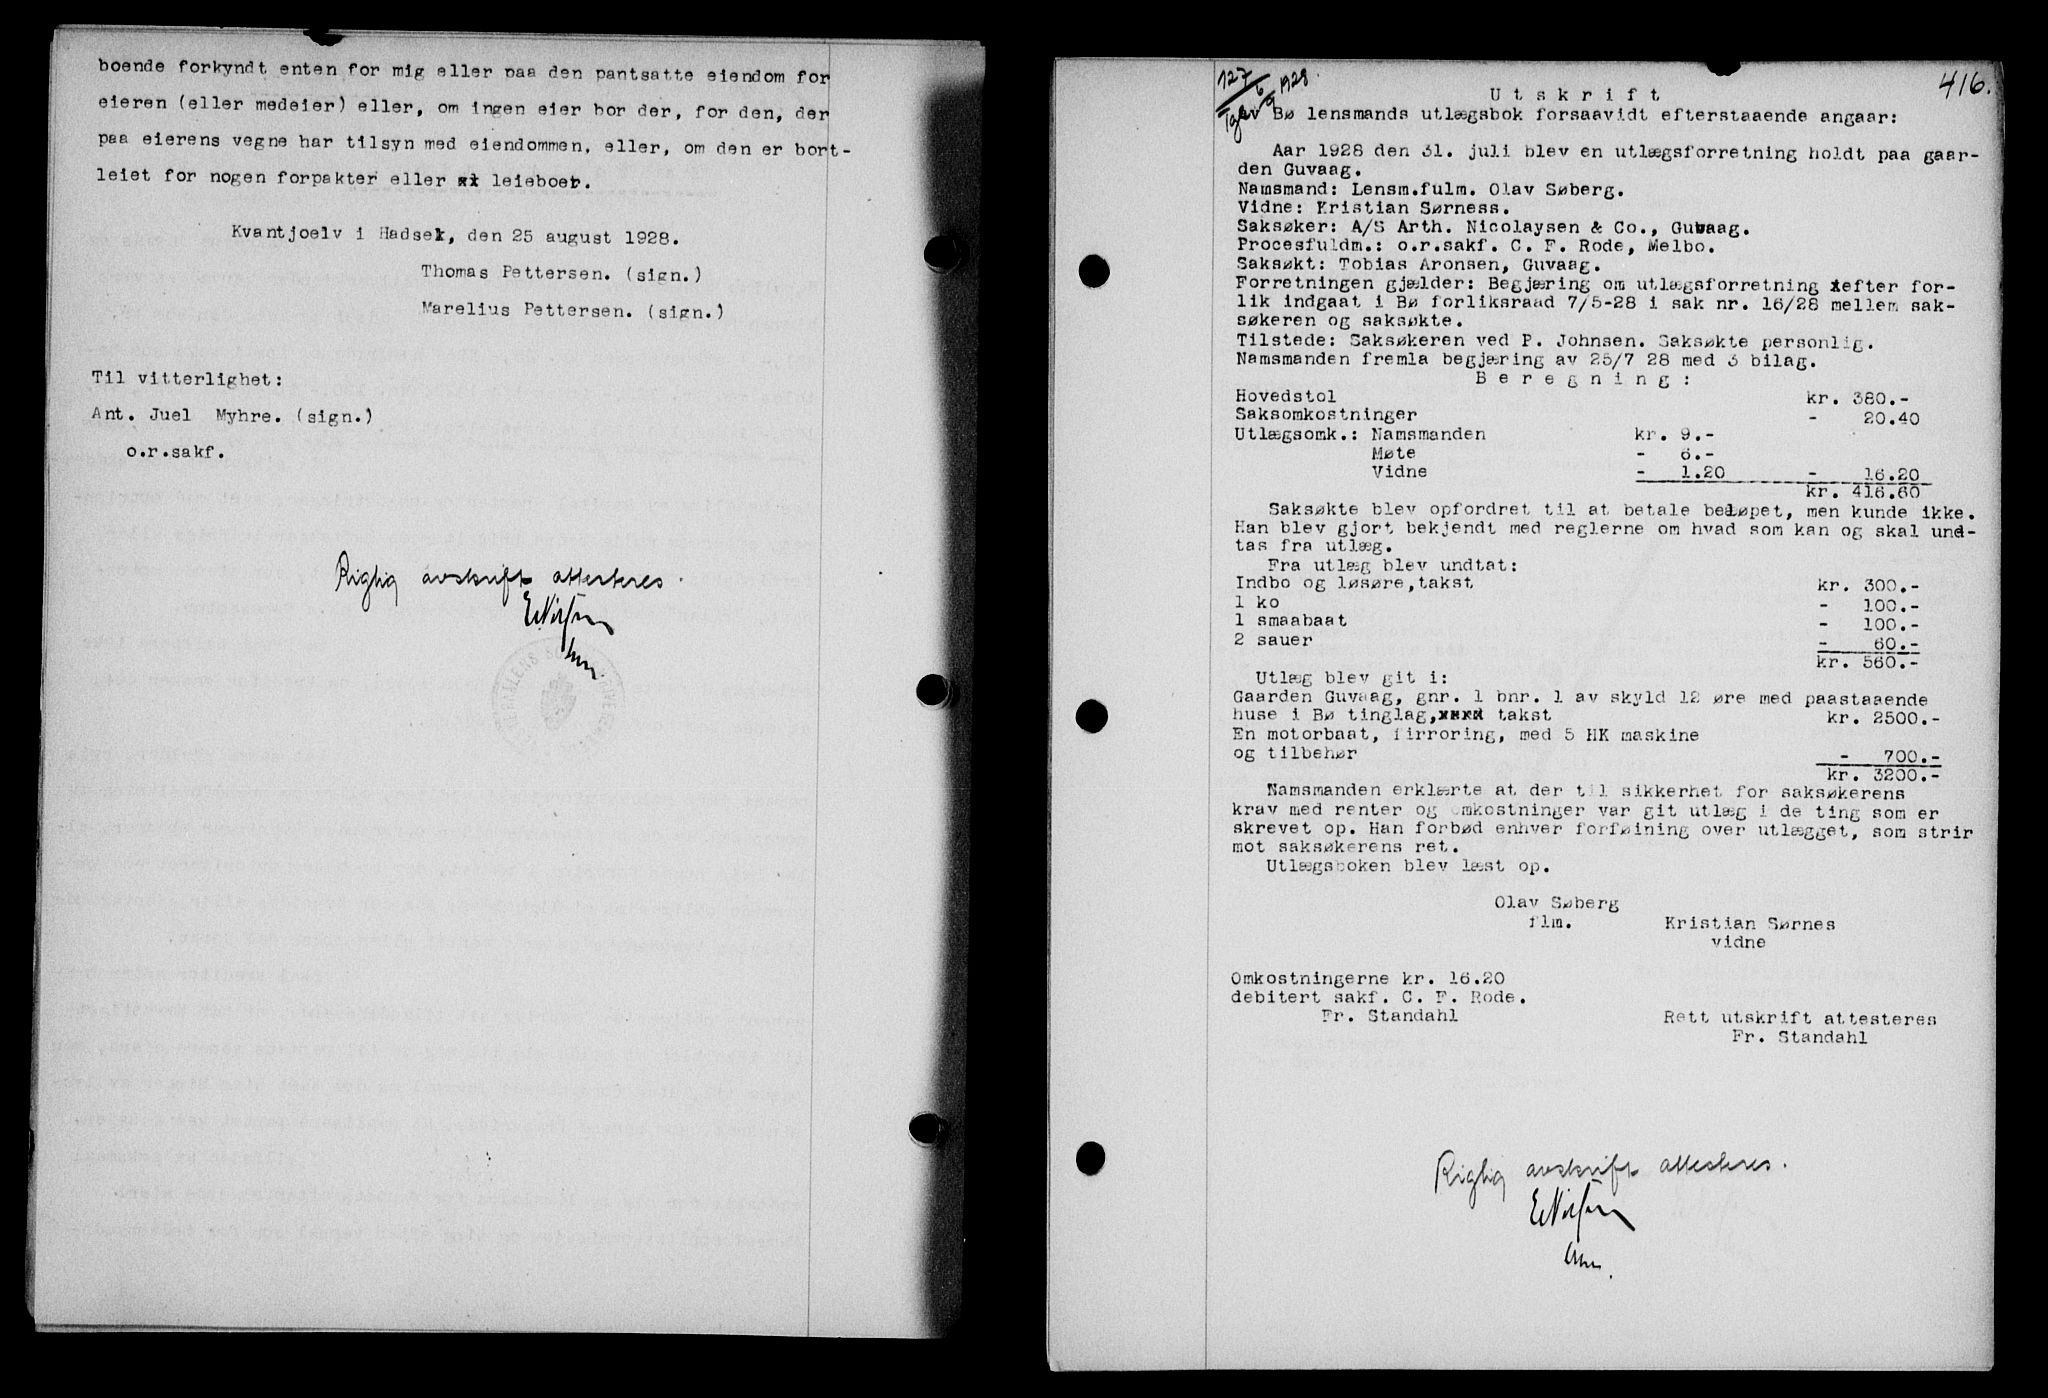 boende forkyndt enten for mig eller paa den pantsatte eiendom for
eieren (eller medeier) eller, om ingen eier bor der, for den, der
paa eierens vegne har tilsyn med eiendommen, eller, om den er bort-
leiet for nogen forpakter eller leieboer.
Kvantjoelv i Hadsel, den 25 august 1928.
Thomas Pettersen. (sign.)
Marelius Pettersen. (sign.)
Til vitterlighet:
Ant. Juel Myhre. (sign.)
o.r.sakf.
Rigtig avskrift attesteres.
416.
127/1928.
Utskrift
av Bø lensmands utlægsbok forsaavidt efterstaaende angaar:
Aar 1928 den 31. juli blev en utlægsforretning holdt paa gaar-
den Guvaag.
Namsmand: Lensm.fulm. Olav Søberg.
Vidne: Kristian Sørness.
Saksøker: A/S Arth. Nicolaysen & Co., Guvaag.
Procesfuldm.: o.r.sakf. C. F. Rode, Melbo.
Saksøkt: Tobias Aronsen, Guvaag.
Forretningen gjælder: Begjæring om utlægsforretning efter for-
lik indgaat i Bø forliksraad 7/5-28 i sak nr. 16/28 mellem sak-
søkeren og saksøkte.
Tilstede: Saksøkeren ved P. Johnsen. Saksøkte personlig.
Namsmanden fremla begjæring av 25/7 28 med 3 bilag.
Beregning:
Hovedstol kr. 380.-
Saksomkostninger - 20.40
Utlægsomk.: Namsmanden kr. 9.-
Møte - 6.-
Vidne - 1.20 - 16.20
kr. 416.60
Saksøkte blev opfordret til at betale beløpet, men kunde ikke.
Han blev gjort bekjendt med reglerne om hvad som kan og skal und-
tas fra utlæg.
Fra utlæg blev undtat:
Indbo og løsøre, takst kr. 300.-
1 ko - 100.-
1 smaabaat - 100.-
2 sauer - 60.-
kr. 560.-
Utlæg blev git i:
Gaarden Guvaag, gnr. 1 bnr. 1 av skyld 12 øre med paastaaende
huse i Bø tinglag, takst kr. 2500.-
En motorbaat, firroring, med 5 HK maskine
og tilbehør - 700.-
kr. 3200.-
Namsmanden erklærte at der til sikkerhet for saksøkerens
krav med renter og omkostninger var git utlæg i de ting som er
skrevet op. Han forbød enhver forføining over utlægget, som strir
mot saksøkerens ret.
Utlægsboken blev læst op.
Olav Søberg
flm.
Kristian Sørnes
vidne
Omkostningerne kr. 16.20
debitert sakf. C. F. Rode.
Fr. Standahl
Rett utskrift attesteres
Fr. Standahl
Rigtig avskrift attesteres.